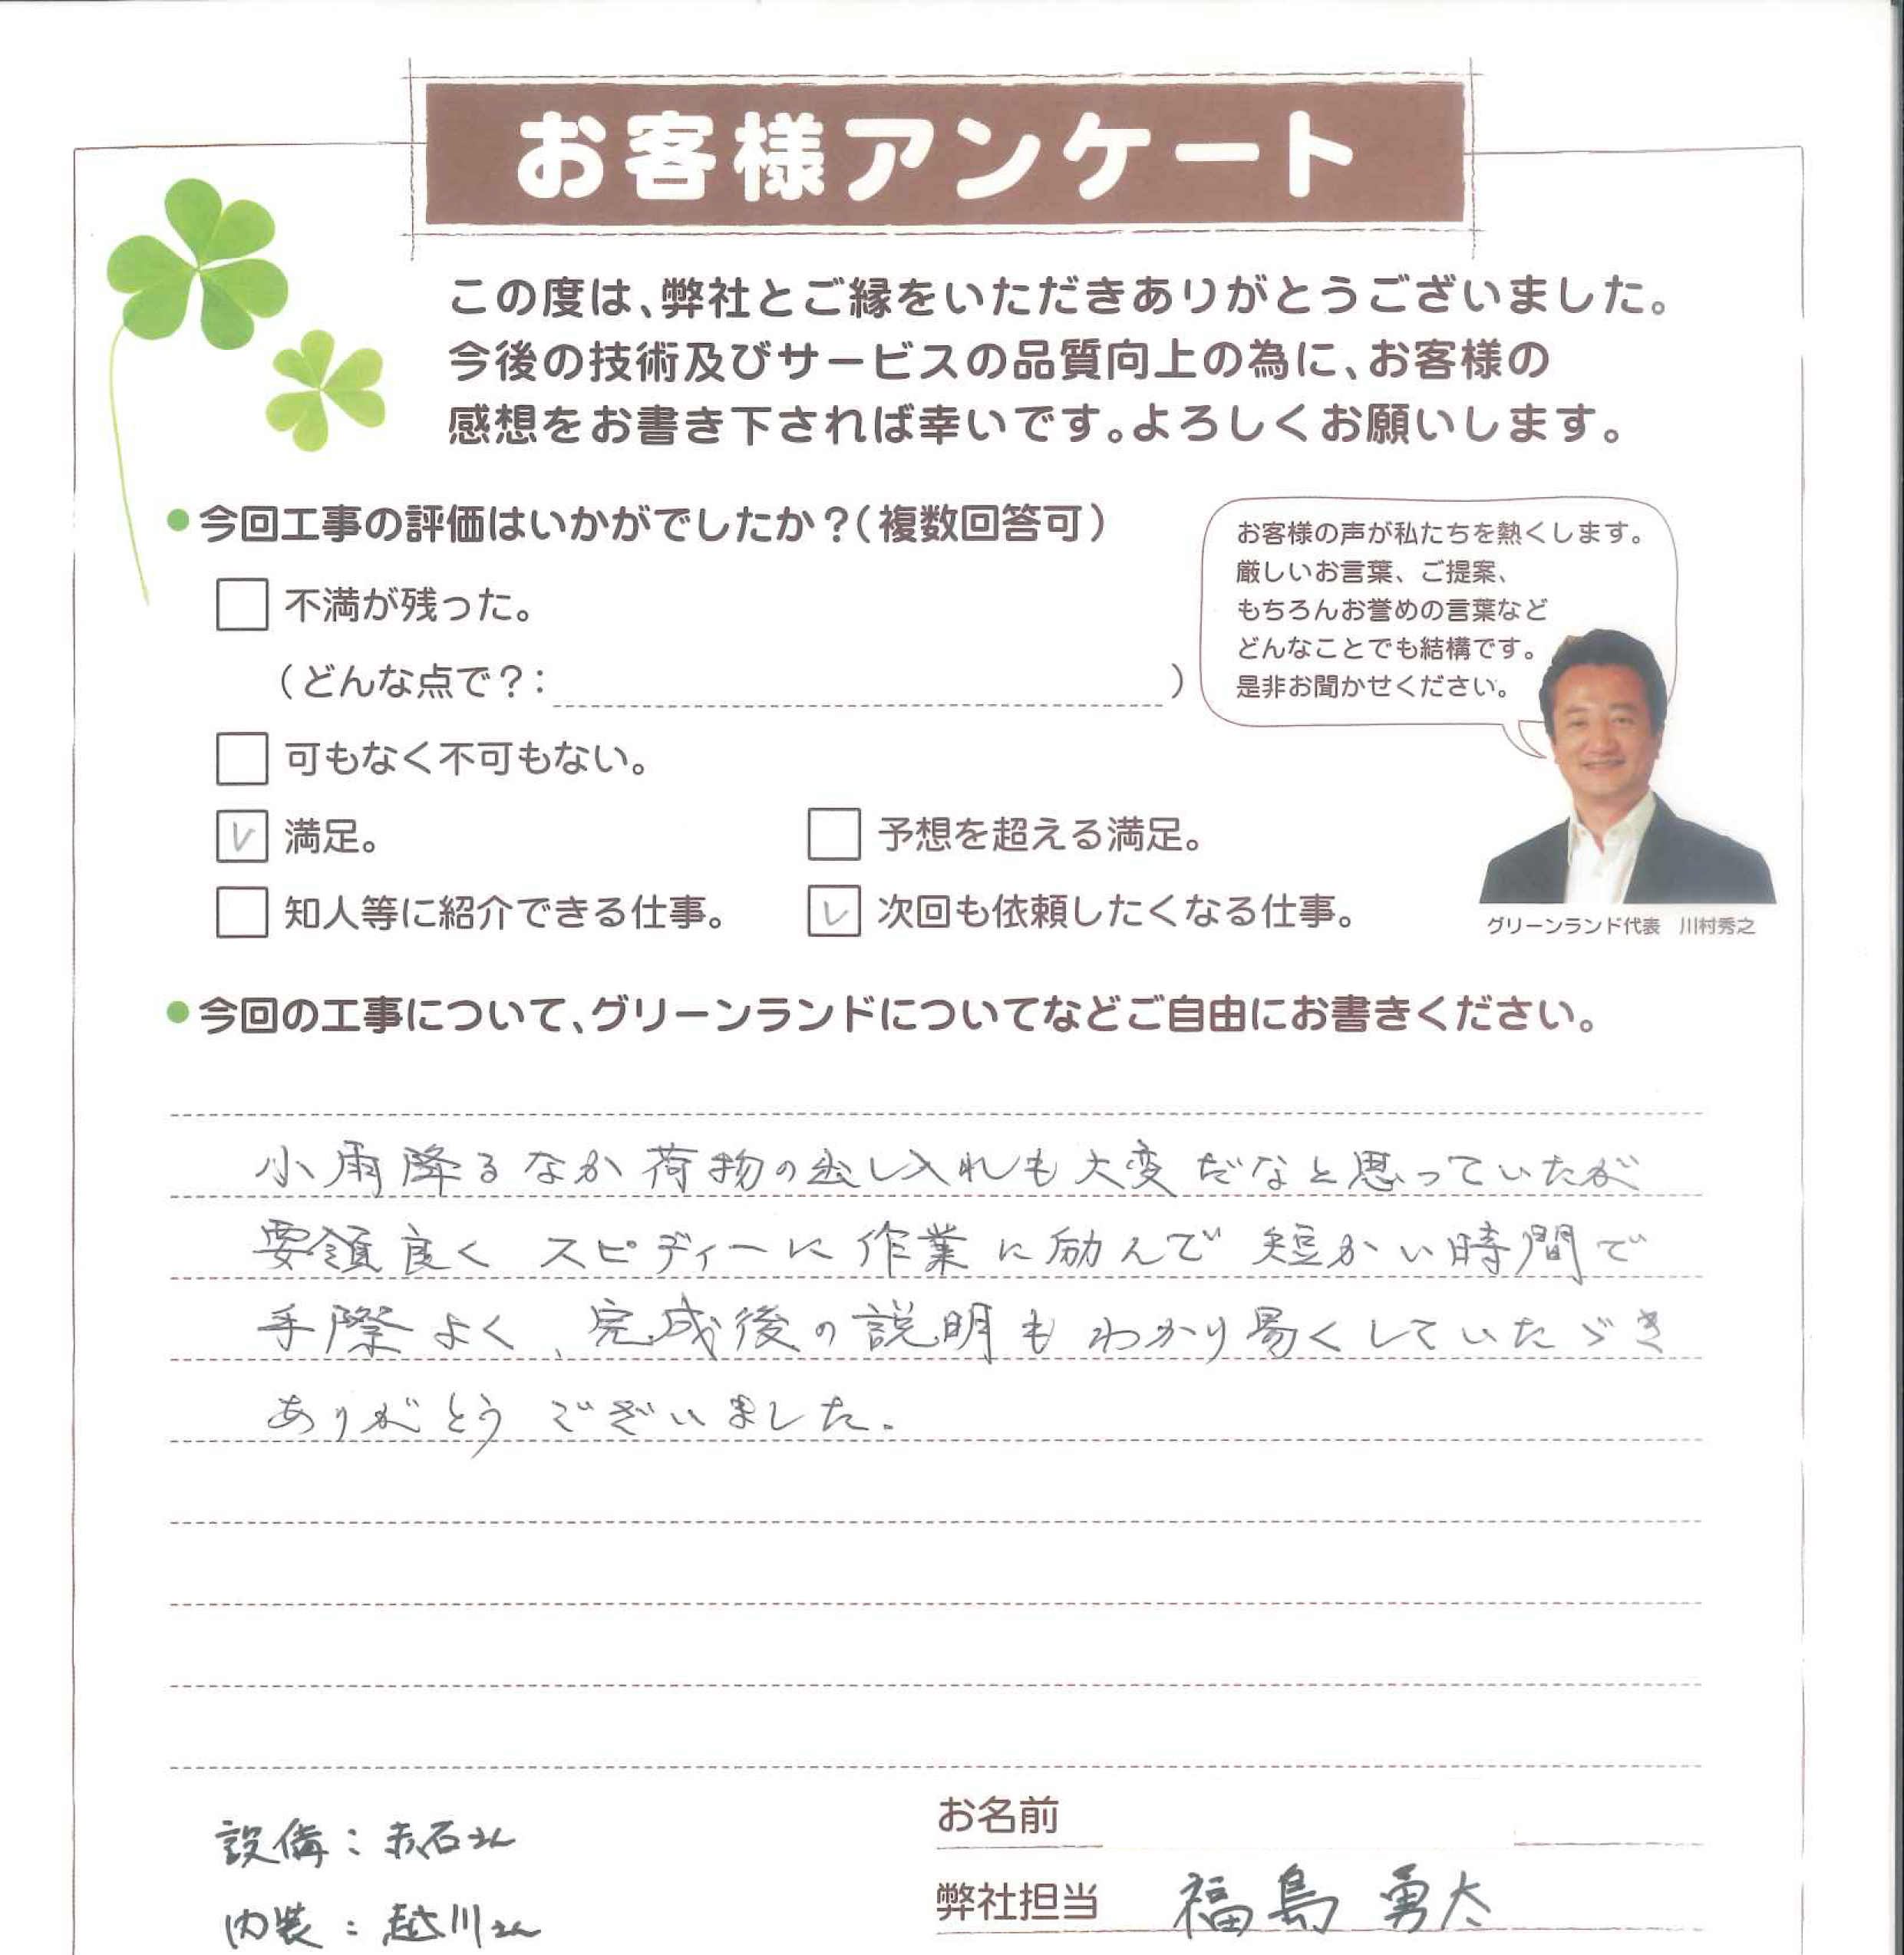 お客様アンケート
この度は、弊社とご縁をいただきありがとうございました。
今後の技術及びサービスの品質向上の為に、お客様の
感想をお書き下されば幸いです。よろしくお願いします。
●今回工事の評価はいかがでしたか？（複数回答可）
不満が残った。
（どんな点で？：　）
可もなく不可もない。
レ 満足。
予想を超える満足。
知人等に紹介できる仕事。
レ 次回も依頼したくなる仕事。
お客様の声が私たちを熱くします。
厳しいお言葉、ご提案、
もちろんお誉めの言葉など
どんなことでも結構です。
是非お聞かせください。
グリーンランド代表　川村秀之
●今回の工事について、グリーンランドについてなどご自由にお書きください。
小雨降るなか荷物の出し入れも大変だなと思っていたが
要領良く スピディーに作業に励んで 短かい時間で
手際よく、完成後の説明もわかり易くしていたゞき
ありがとうございました。
設備：赤石さん
内装：越川さん
お名前
弊社担当　福島 勇太